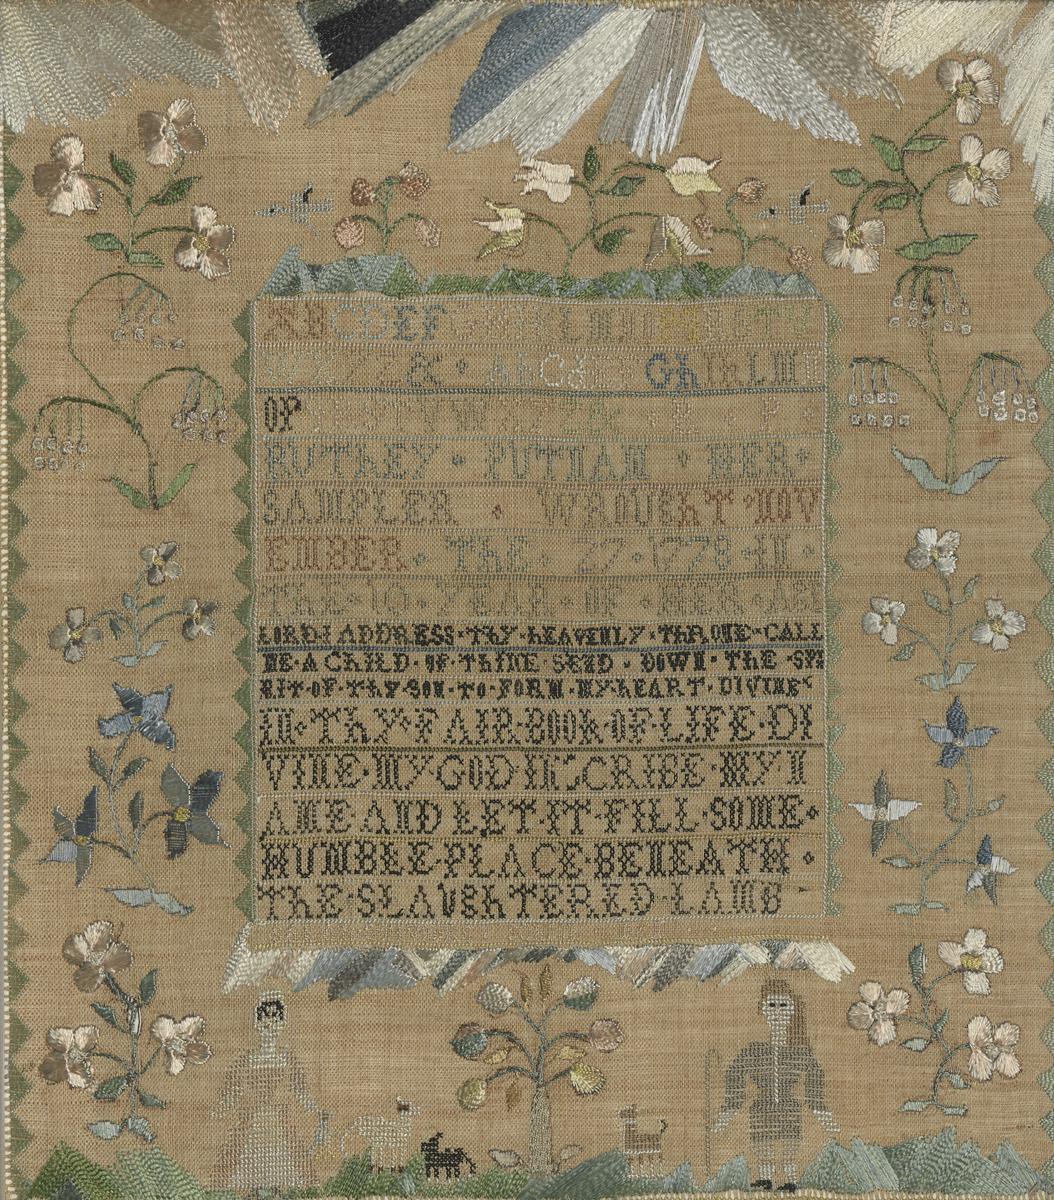 ABCDEFGHIKLMNOPQRSTV
WXYZ & AbCdefGhIKLMN
OP
RUTHEY · PUTNAM · HER ·
SAMPLER · WROUGhT · NOV
EMBER · THE · 27 · 1778 · IN ·
THE · 10 · YEAR · OF · HER · AG
LORD I ADDRESS · Thy · hEAVENLY · ThRONE · CALL
ME · A ChILD · OF · ThINE SEND · DOWN · ThE · SPI
RIT · OF · Thy · SON · TO · FORM · MY · hEART · DIVINE
IN · Thy · FAIR · BOOK · OF · LIFE · DI
VINE · MY · GOD INSCRIBE · MY N
AME · AND LET · IT · FILL · SOME ·
HUMBLE · PLACE · BENEATH ·
ThE · SLAUGhTERED · LAMB